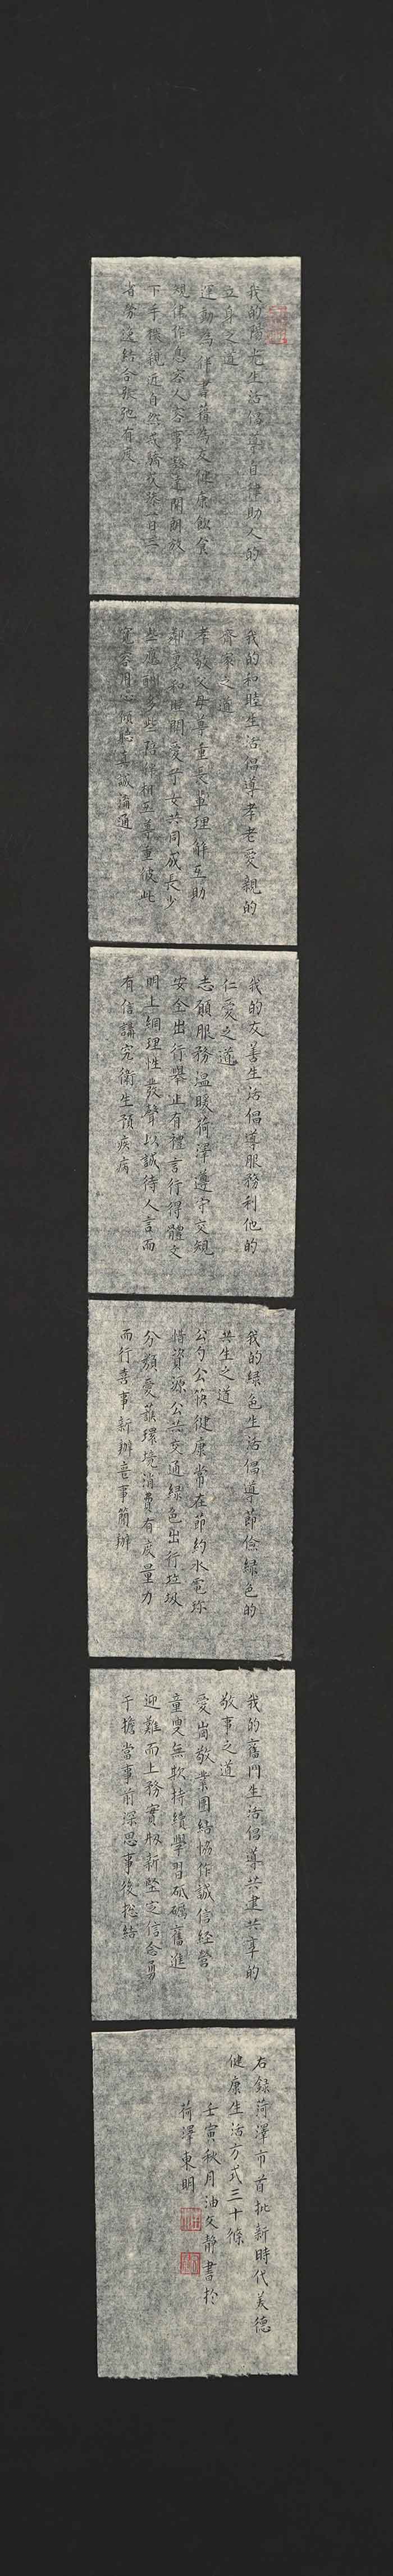 我的陽光生活倡導自律助人的
立身之道
運動為伴書籍為友健康飲食
規律作息容人容事豁達開朗放
下手機親近自然戒驕戒躁一日三
省勞逸結合張弛有度
我的和睦生活倡導孝老愛親的
齊家之道
孝敬父母尊重長輩理解互助
鄰里和睦關愛子女共同成長少
些應酬多些陪伴相互尊重彼此
寬容用心傾聽真誠溝通
我的友善生活倡導服務利他的
仁愛之道
志願服務溫暖菏澤遵守交規
安全出行舉止有禮言行得體文
明上網理性發聲以誠待人言而
有信講究衛生預疾病
我的綠色生活倡導節儉綠色的
共生之道
公勺公筷健康常在節約水電珍
惜資源公共交通綠色出行垃圾
分類愛護環境消費有度量力
而行喜事新辦喪事簡辦
我的奮鬥生活倡導共建共享的
敬事之道
愛崗敬業團結協作誠信經營
童叟無欺持續學習砥礪奮進
迎難而上務實創新堅定信念勇
于擔當事前深思事後總結
右錄菏澤市首批新時代美德
健康生活方式三十條
壬寅秋月油文靜書於
菏澤東明